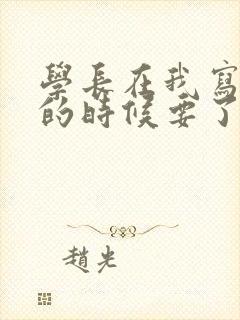 學長在我寫
的時候要了
趙光